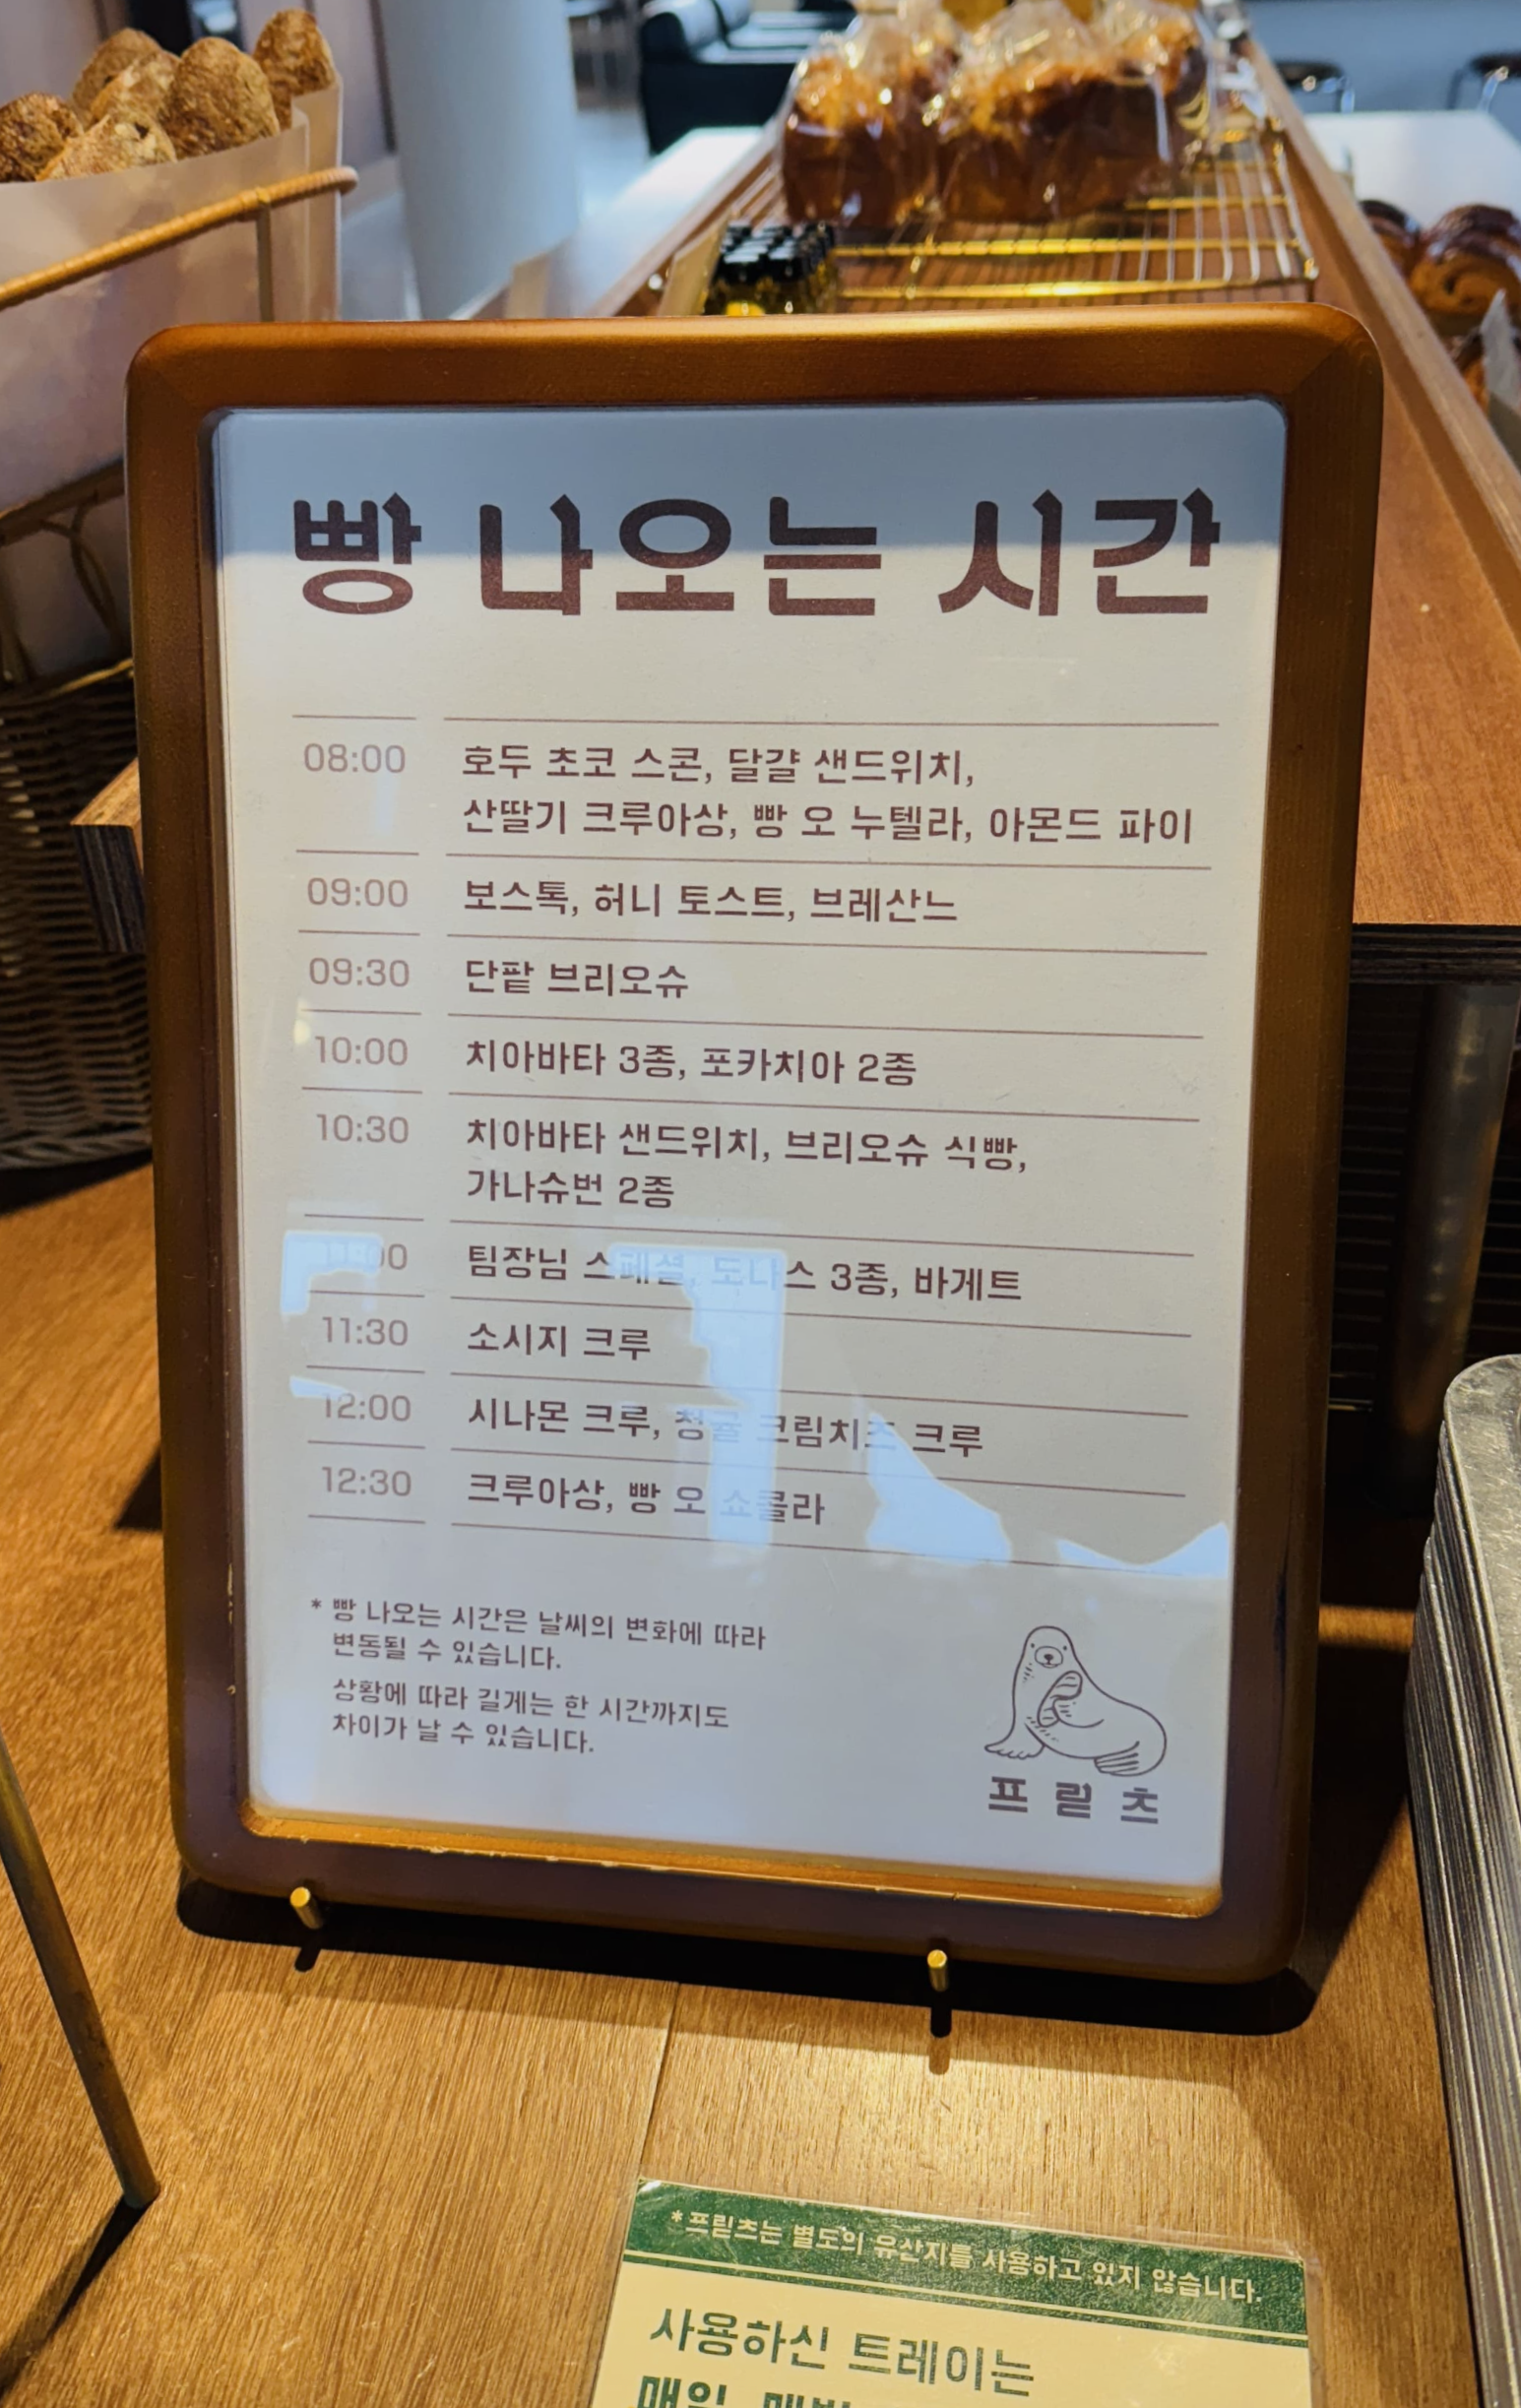 빵 나오는 시간
08:00 호두 초코 스콘, 달걀 샌드위치,
산딸기 크루아상, 빵 오 누텔라, 아몬드 파이
09:00 보스톡, 허니 토스트, 브레산느
09:30 단팥 브리오슈
10:00 치아바타 3종, 포카치아 2종
10:30 치아바타 샌드위치, 브리오슈 식빵,
가나슈번 2종
11:00 팀장님 스페셜, 도나스 3종, 바게트
11:30 소시지 크루
12:00 시나몬 크루, 청귤 크림치즈 크루
12:30 크루아상, 빵 오 쇼콜라
* 빵 나오는 시간은 날씨의 변화에 따라
변동될 수 있습니다.
상황에 따라 길게는 한 시간까지도
차이가 날 수 있습니다.
프릳츠
*프릳츠는 별도의 유산지를 사용하고 있지 않습니다.
사용하신 트레이는
매일